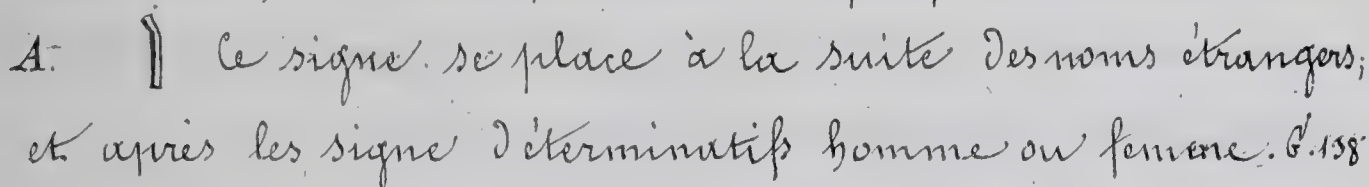 A: Ce signe se place à la suite des noms étrangers;
et après les signe déterminatifs homme ou femme. G. 138